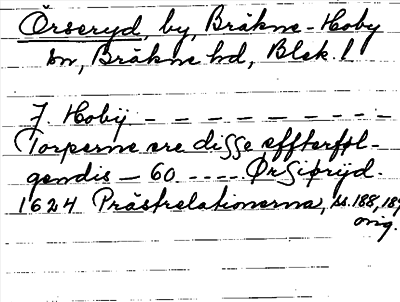 Örseryd, by, Bräkne-Hoby
sn, Bräkne hd, Blek. l
J. Hobÿ - - - - - - - - -
Torperne ere disse effterføl-
gendis - 60 ---- Ørsiørijd.
1624 Prästrelationerna, ss. 188, 189
orig.